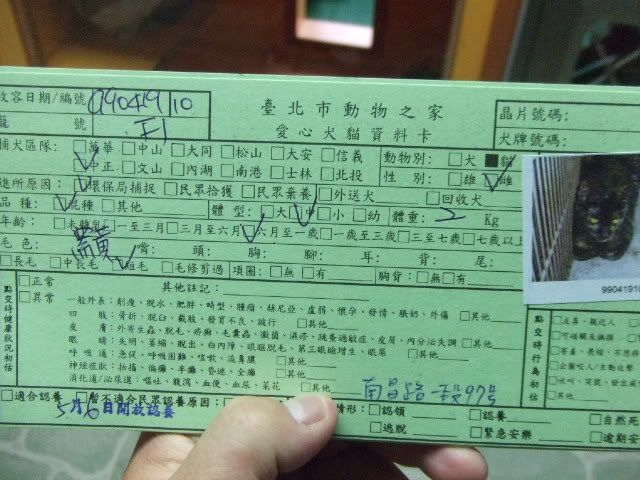 收容日期/編號 990419 10
臺北市動物之家
愛心犬貓資料卡
晶片號碼:
籠號
犬牌號碼:
捕犬區隊: □萬華 □中山 □大同 □松山 □大安 □信義 動物別: □犬 ■貓
□中正 □文山 □內湖 □南港 □士林 □北投 性別: □雄 □雌
進所原因: □環保局捕捉 □民眾拾獲 □民眾棄養 □外送犬 □回收犬
品種: □混種 □其他 體型: □大 □中 □小 □幼 體重: 2 Kg
年齡: □未離乳 □一至三月 □三月至六月 □六月至一歲 □一歲至三歲 □三至七歲 □七歲以上
毛色: 黑黃 嘴: 頭: 胸: 腳: 耳: 背: 尾:
□長毛 □中長毛 □短毛 □毛修剪過 項圈: □無 □有 胸背: □無 □有
99041910
點交時健康狀況初估
□正常
□異常
其他註記:
一般外表: 削瘦、脫水、肥胖、畸型、腫瘤、赫尼亞、虛弱、懷孕、發情、脹奶、外傷 □其他
四肢: 骨折、脫臼、截肢、發育不良、跛行 □其他
皮膚: 外寄生蟲、脫毛、疥癬、毛囊蟲、黴菌、濕疹、跳蚤過敏症、皮屑、內分泌失調 □其他
眼睛: 失明、萎縮、脫出、白內障、眼瞼脫毛、第三眼瞼增生、眼屎 □其他
呼吸道: 急促、呼吸困難、咳嗽、流鼻膿 □其他
神經症狀: 抽搐、偏癱、半癱、昏迷、全癱 □其他
消化道/泌尿道: 嘔吐、腹瀉、血便、血尿、菜花 □其他
南昌路一段97號
點交時行為初估
□友善、親近人
□其他
□適合認養 □暫不適合民眾認養原因:
5月6日開放認養
情形: □認領 □認養 □自然死
□逃脫 □緊急安樂 □逾期安